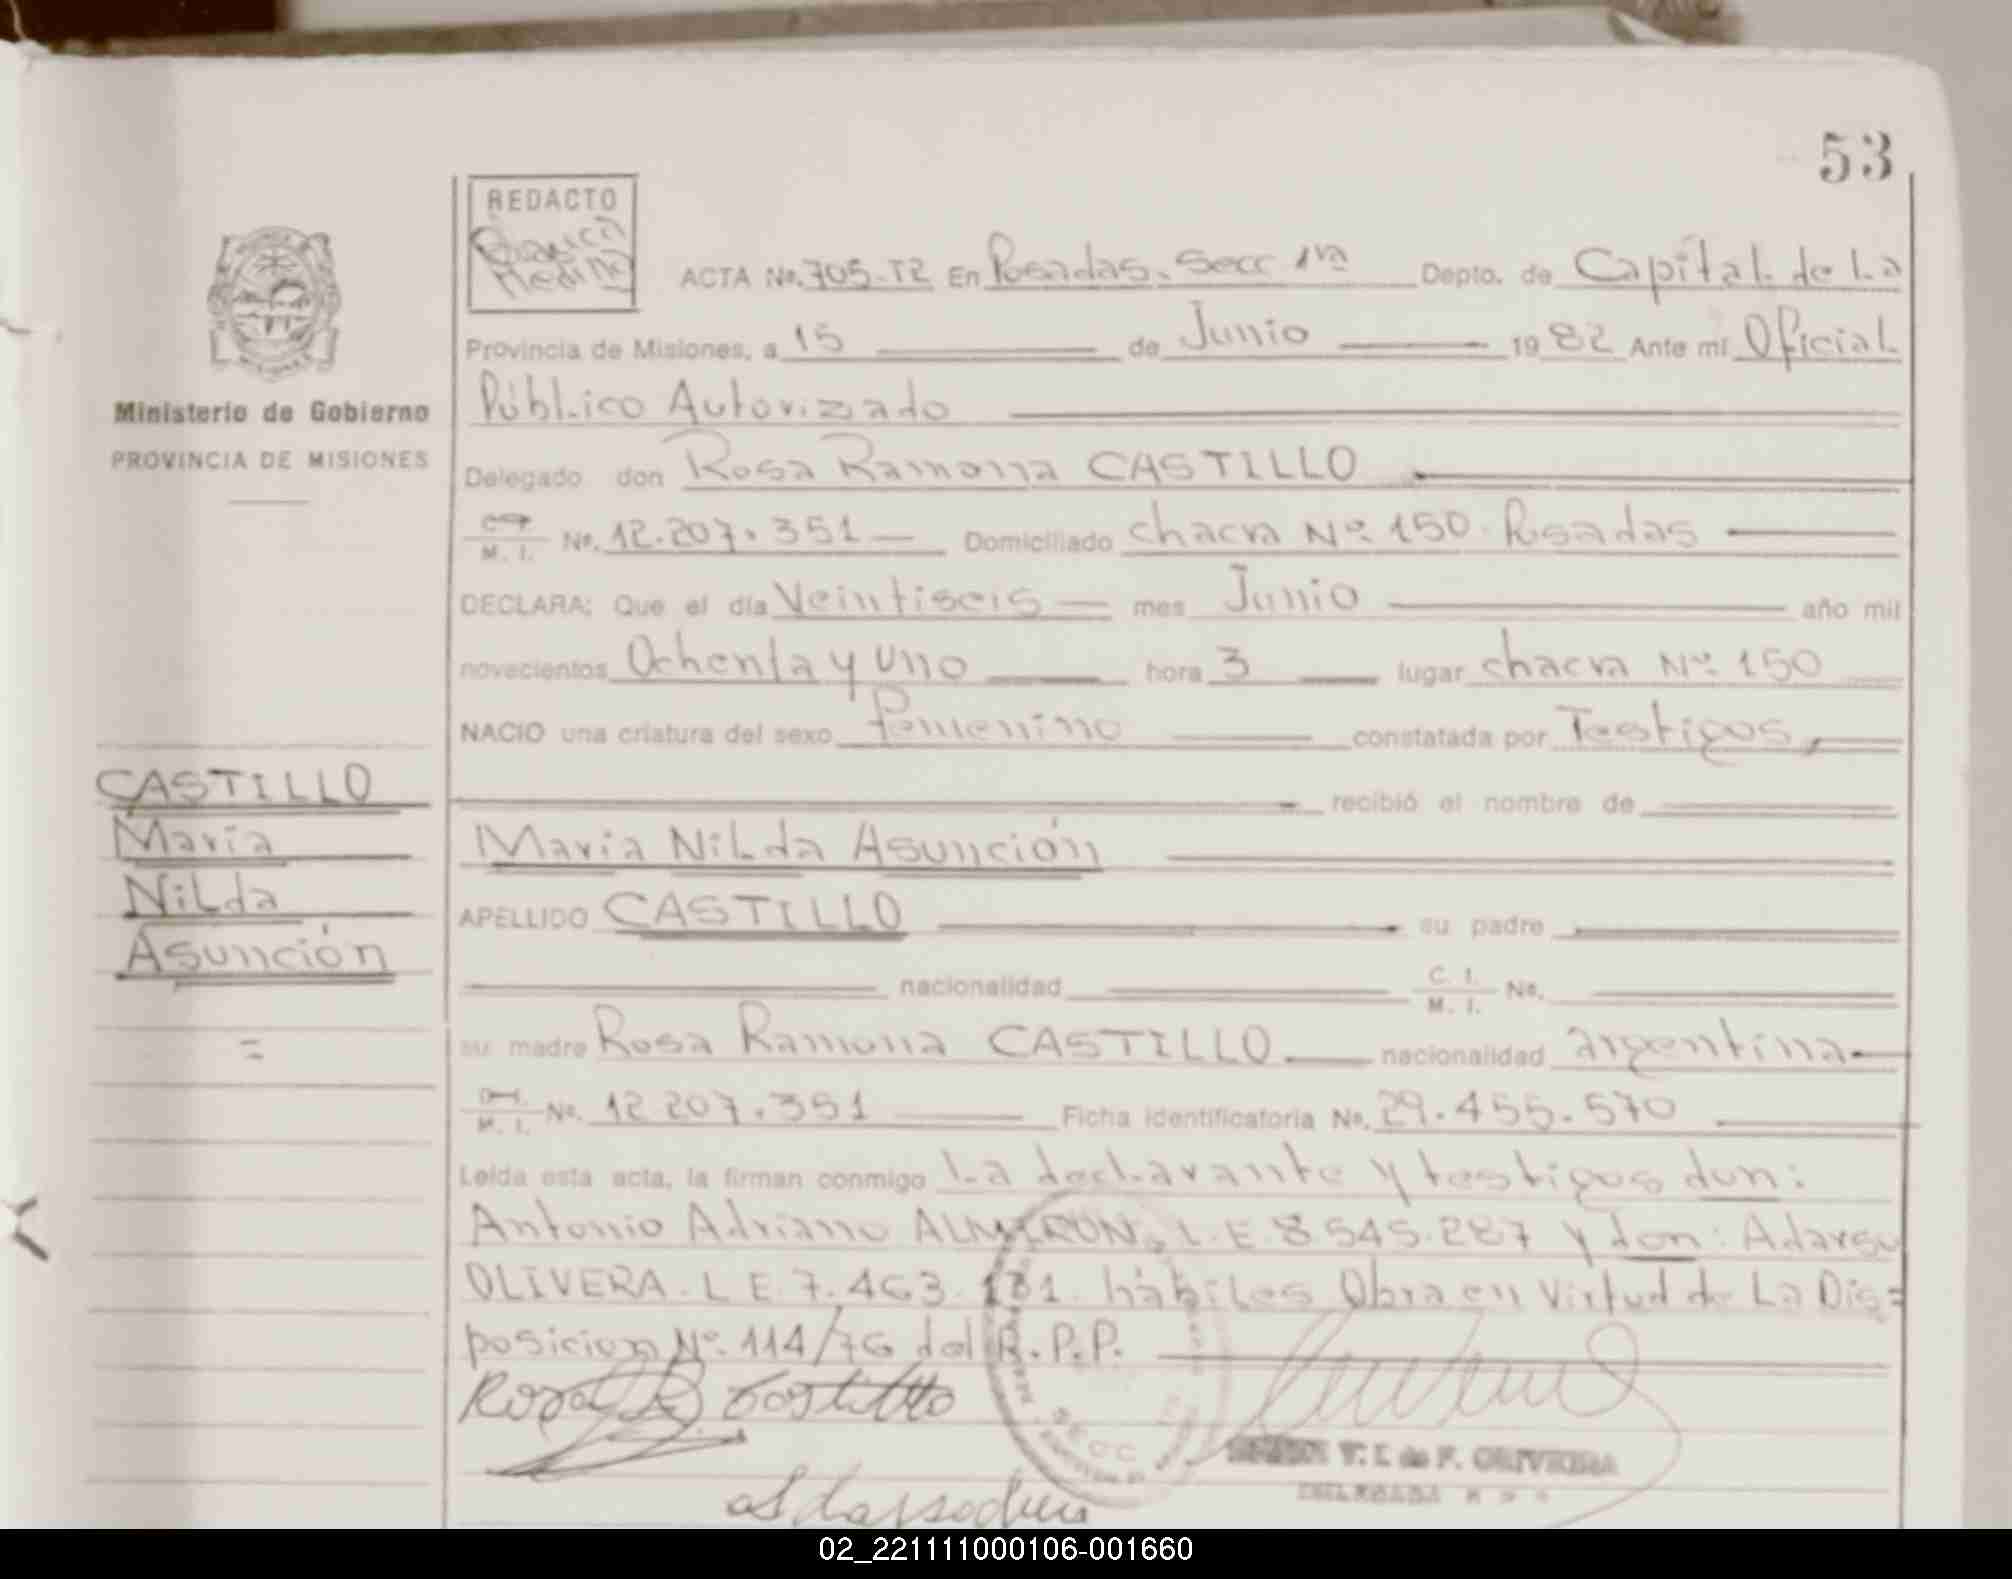 53
REDACTO
Medina
ACTA No. 705-T2 En Posadas. Secc 1ra Depto. de Capital de La
Provincia de Misiones, a 15 de Junio 1982 Ante mí Oficial
Público Autorizado
Delegado don Rosa Ramona CASTILLO
M. I. No. 12.207.351 Domiciliado chacra Nº 150. Posadas
DECLARA: Que el día Veintiseis mes Junio año mil
novecientos Ochenta y uno hora 3 lugar chacra Nº 150
NACIO una criatura del sexo femenino constatada por Testigos,
recibió el nombre de
Maria Nilda Asunción
APELLIDO CASTILLO su padre
nacionalidad C. I. M. I. No.
su madre Rosa Ramona CASTILLO nacionalidad argentina
M. I. No. 12 207.351 Ficha identificatoria No. 29.455.570
Leída esta acta, la firman conmigo La declarante y testigos don:
Antonio Adriano ALMIRON, L.E. 8.545.287 y don: Adarsu
OLIVERA. L E. 7.463.131. hábiles Obra en Virtud de La Dis=
posicion Nº. 114/76 del R.P.P.
Rosa R. Castillo
SECC
V. I. de F. OLIVEIRA
DELEGADA
Ministerio de Gobierno
PROVINCIA DE MISIONES
CASTILLO
Maria
Nilda
Asunción
02_221111000106-001660